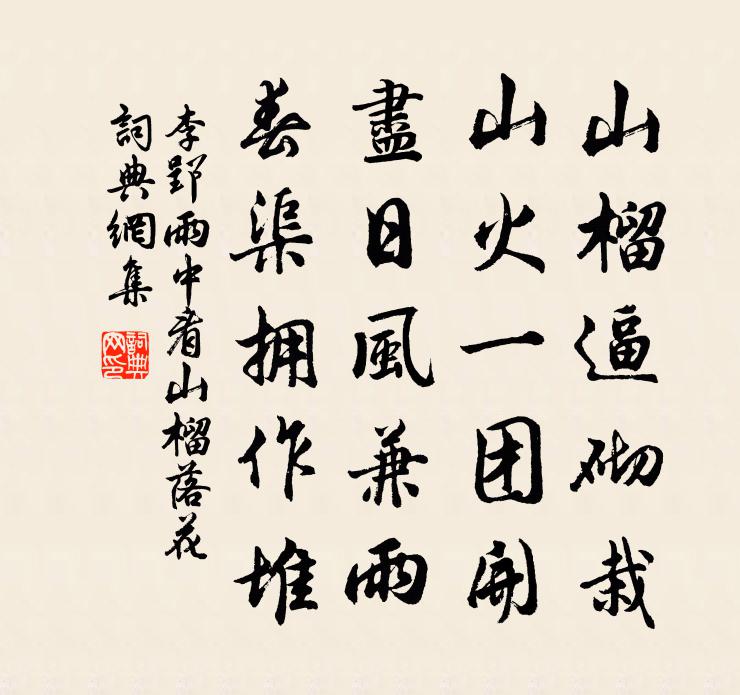 山榴逼砌栽
山火一团開
盡日風兼雨
春渠拥作堆
李郢雨中看山榴落花
詞典網集
詞典网印